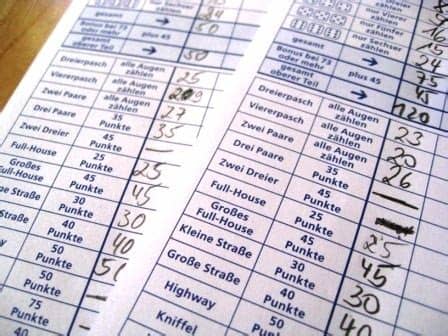 nur Sechser zählen
gesamt →
Bonus bei 73 oder mehr plus 45
gesamt oberer Teil → 50
Dreierpasch alle Augen zählen 25
Viererpasch alle Augen zählen
Zwei Paare alle Augen zählen 27
Drei Paare 35 Punkte 35
Zwei Dreier
Full-House 25 Punkte 25
Großes Full-House 45 Punkte 45
Straße 30 Punkte 30
Straße 40 Punkte 40
50 Punkte
50 Punkte
75 Punkte
nur Vierer zählen
nur Fünfer zählen
nur Sechser zählen 24
gesamt → 75
Bonus bei 73 oder mehr plus 45 45
gesamt oberer Teil → 120
Dreierpasch alle Augen zählen 23
Viererpasch alle Augen zählen 20
Zwei Paare alle Augen zählen 26
Drei Paare 35 Punkte
Zwei Dreier 45 Punkte
Full-House 25 Punkte 25
Großes Full-House 45 Punkte 45
Kleine Straße 30 Punkte 30
Große Straße 40 Punkte 40
Highway 40 Punkte
Kniffel 50